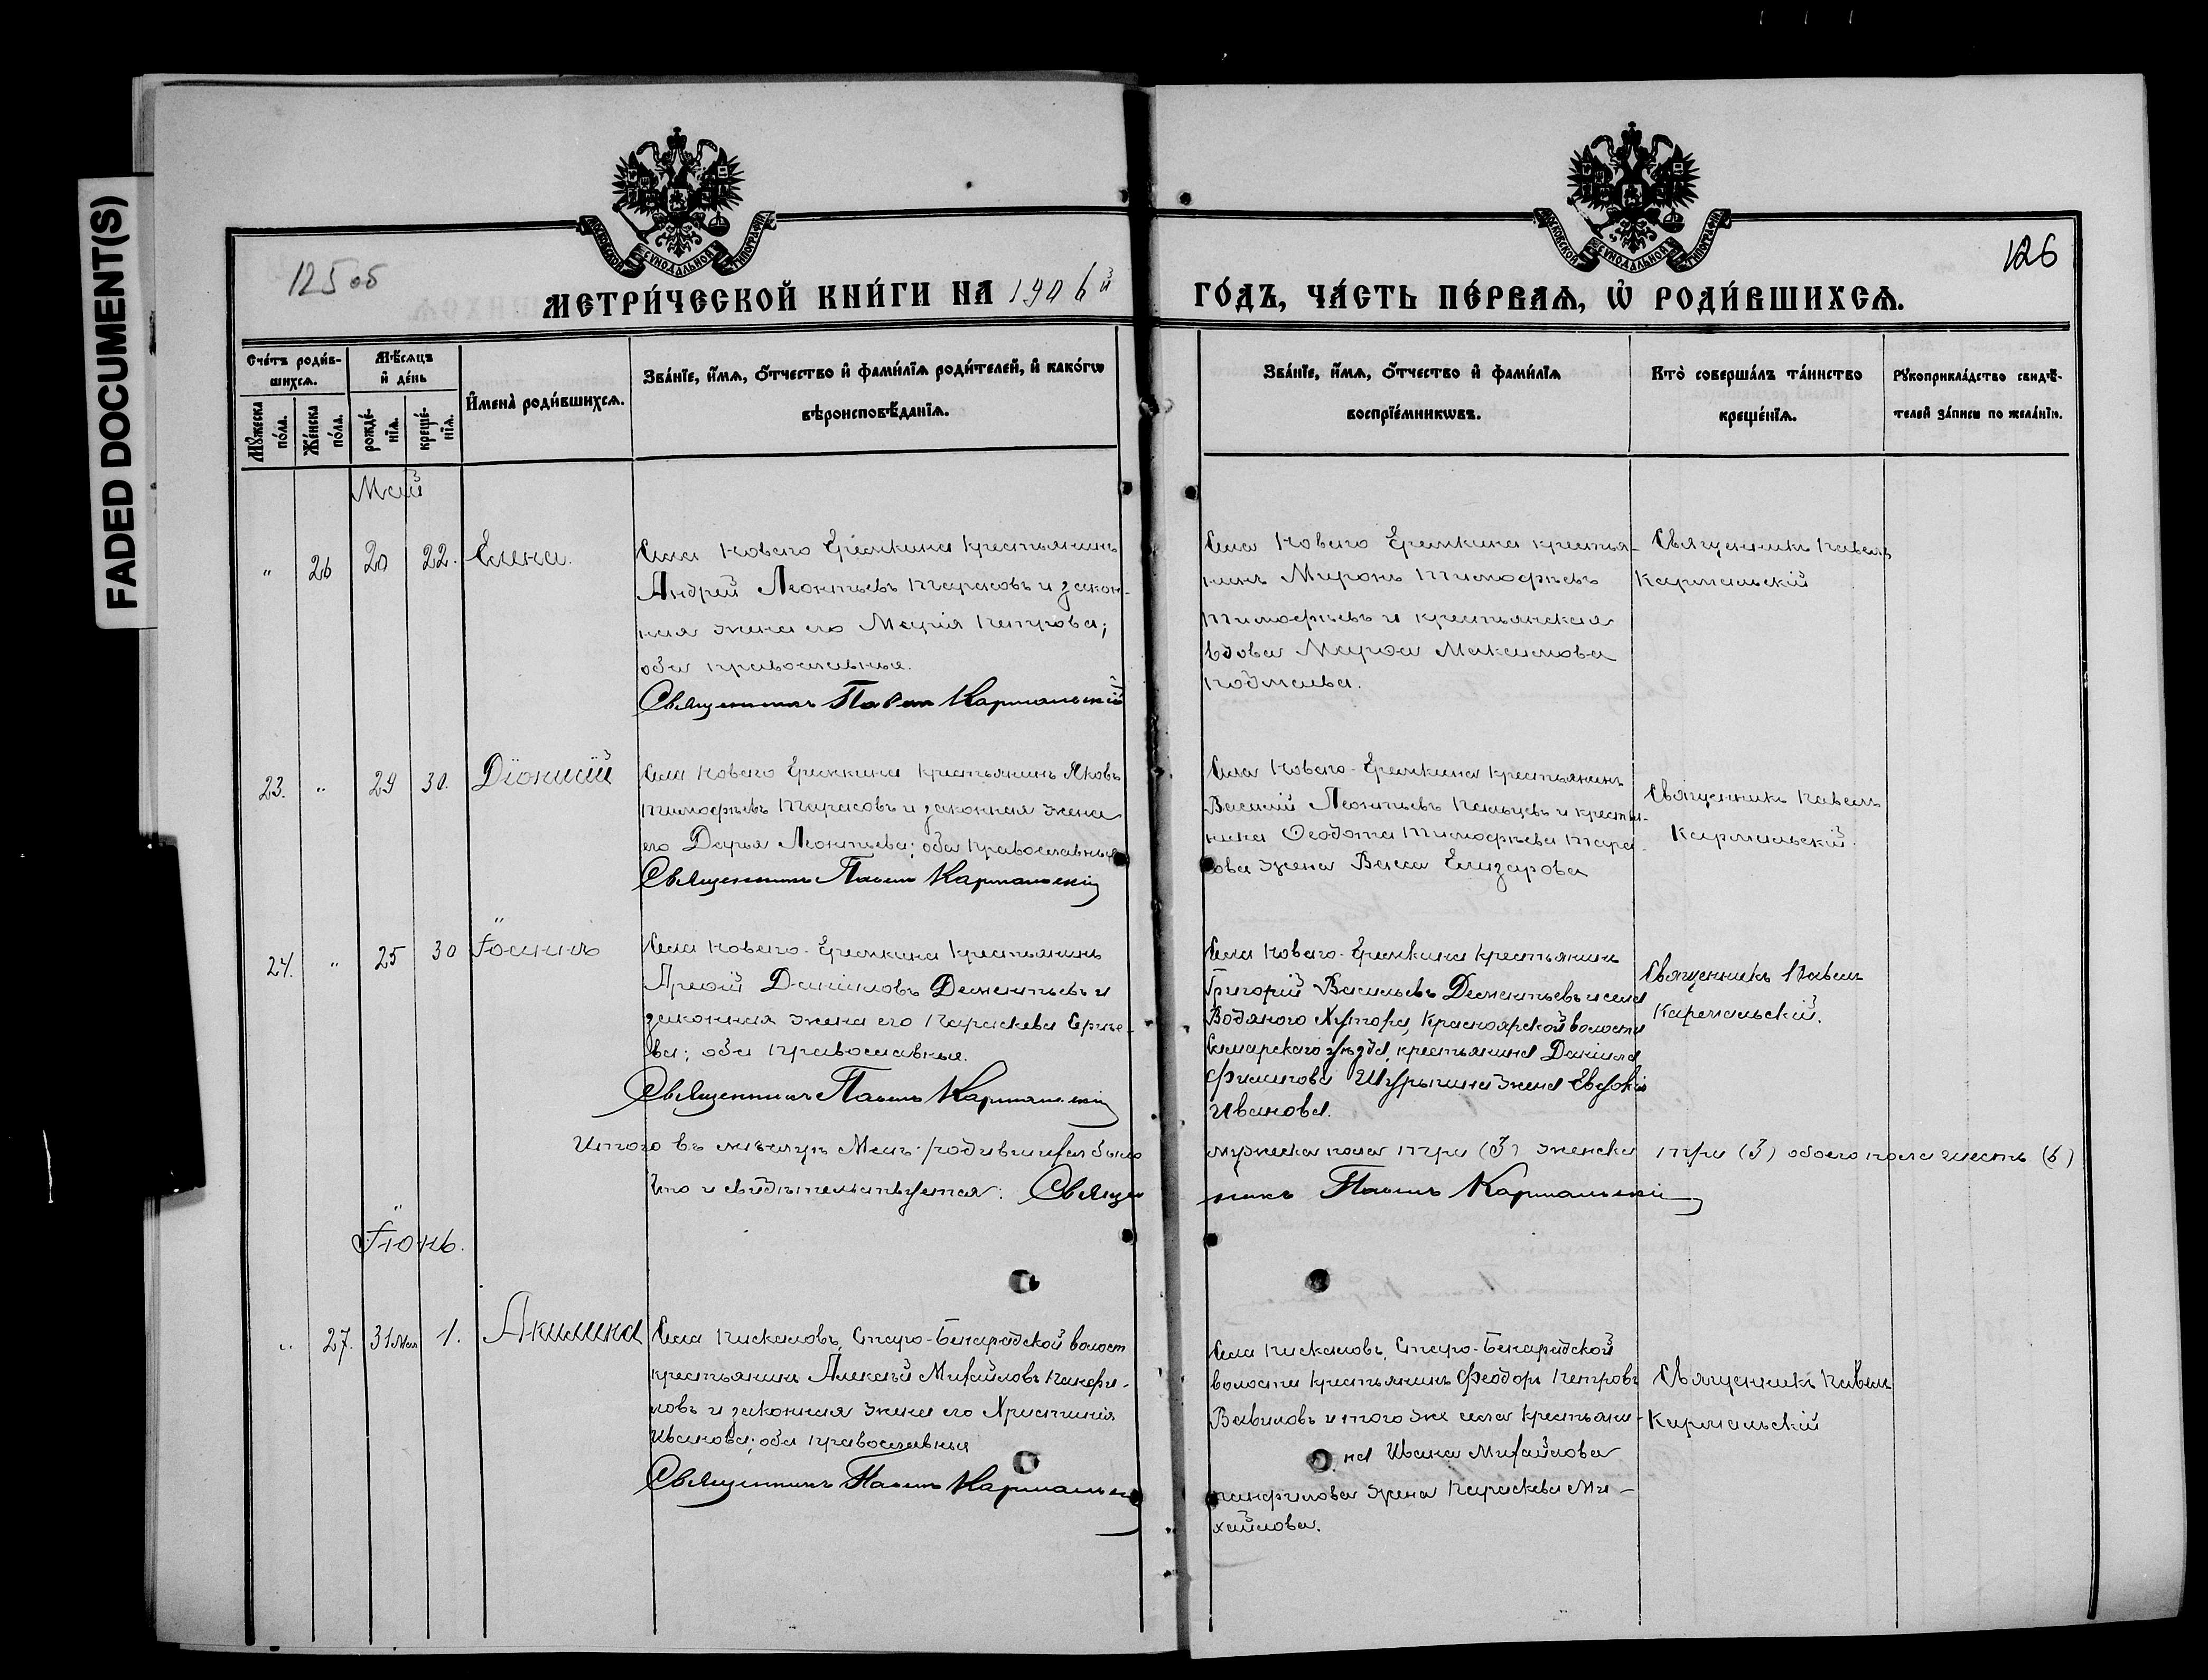 FADED DOCUMENT(S)
МОСКОВСКОЙ СѴНОДАЛЬНОЙ ТИПОГРАФІИ
МОСКОВСКОЙ СѴНОДАЛЬНОЙ ТИПОГРАФІИ
125об
126
МЕТРИ́ЧЕСКОЙ КНИ́ГИ НА 1906й
ГО́ДЪ, ЧА́СТЬ ПЕ́РВАѦ, Ѡ҆ РОДИ́ВШИХСѦ.
Сче́тъ роди́в-
шихсѧ.
Мꙋ́жеска
по́ла.
Же́нска
по́ла.
Мѣ́сѧцъ
и҆ де́нь
рожде́-
нїѧ.
креще́-
нїѧ.
И҆мена̀ роди́вшихсѧ.
Зва́нїе, и҆́мѧ, ѻ҆́тчество и҆ фами́лїѧ роди́телей, и҆ како́гѡ
вѣроисповѣ́данїѧ.
Зва́нїе, и҆́мѧ, ѻ҆́тчество и҆ фами́лїѧ
воспрїе́мникѡвъ.
Кто̀ соверша́лъ та́инство
креще́нїѧ.
Рꙋкоприкла́дство свидѣ́-
телей за́писи по жела́нїю.
Май
" 26 20 22. Елена.
Села Новаго Еремкина крестьянинъ
Андрей Леонтьевъ Тарасовъ и закон-
ная жена его Марія Петрова;
оба православные.
Священникъ Павелъ Кармальскій
Села Новаго Еремкина крестья-
нинъ Миронъ Тимофѣевъ
Тимофѣевъ и крестьянская
вдова Марфа Максимова
Священникъ Павелъ
Кармальскій
23. " 29 30. Діонисій
Села Новаго Еремкина крестьянинъ Яковъ
Тимофѣевъ Тарасовъ и законная жена
его Дарья Леонтьева; оба православные
Священникъ Павелъ Кармальскій
Села Новаго-Еремкина крестьянинъ
Василій Леонтьевъ Пальцевъ и крестья-
нина Ѳедота Тимофѣева Тара-
сова жена Васса Елизарова
Священникъ Павелъ
Кармальскій.
24. " 25 30 Іоаннъ
Села Новаго-Еремкина крестьянинъ
Арефій Даниловъ Дементьевъ и
законная жена его Параскева Сергѣе-
ва; оба православные.
Священникъ Павелъ Кармальскій
Села Новаго-Еремкина крестьянинъ
Григорій Васильевъ Дементьевъ и села
Водяного Хутора, Красноярской волости
Самарскаго уѣзда, крестьянина Даніила
Филипова Шурыгина жена Евдокія
Иванова.
Священникъ Павелъ
Кармальскій.
Итого въ мѣсяцѣ Маѣ родившихся было мужеска пола три (3) женска три (3) обоего пола шесть (6)
Что и свидѣтельствуется: Священникъ Павелъ Кармальскій
Іюнь.
" 27. 31 Мая 1. Акилина
Села Пискаловъ, Старо-Бинарадской волост
крестьянинъ Алексѣй Михайловъ Панфи-
ловъ и законная жена его Христинія
Иванова; оба православные
Священникъ Павелъ Кармальскій
Села Пискаловъ, Старо-Бинарадской
волости крестьянинъ Феодоръ Петровъ
Вавиловъ и того же села крестьяни-
на Ивана Михайлова
Панфилова жена Параскева Ми-
хайлова.
Священникъ Павелъ
Кармальскій